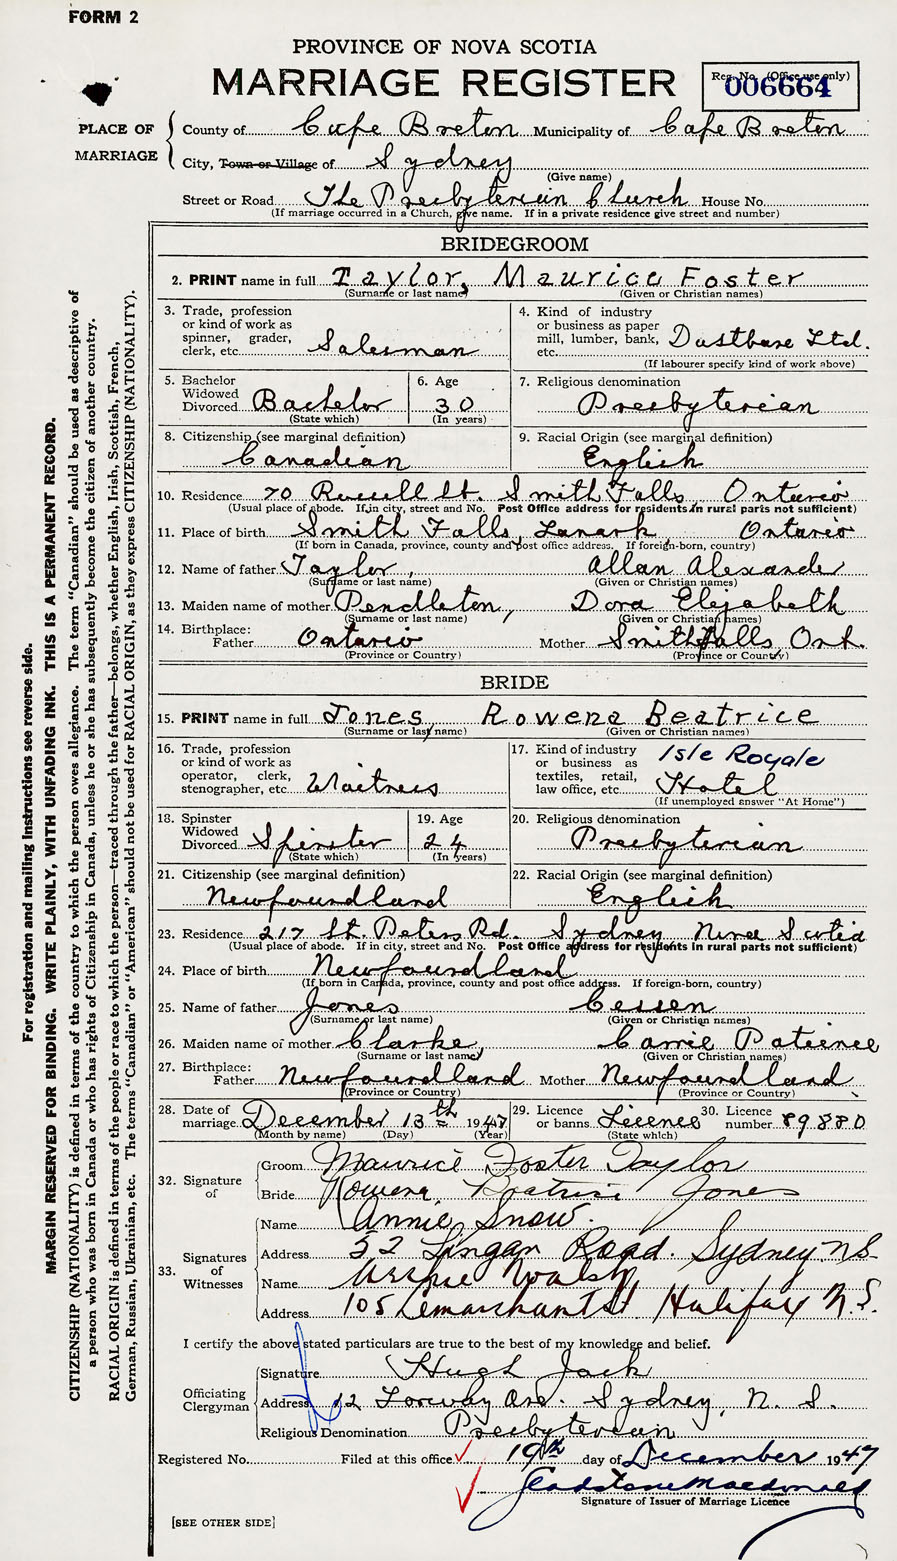 FORM 2
PROVINCE OF NOVA SCOTIA
MARRIAGE REGISTER
Reg. No. (Office use only)
006664
PLACE OF MARRIAGE
County of Cape Breton Municipality of Cape Breton
City, Town or Village of Sydney
(Give name)
Street or Road The Presbyterian Church House No.
(If marriage occurred in a Church, give name. If in a private residence give street and number)
BRIDEGROOM
2. PRINT name in full Taylor, Maurice Foster
(Surname or last name) (Given or Christian names)
3. Trade, profession or kind of work as spinner, grader, clerk, etc. Salesman
4. Kind of industry or business as paper mill, lumber, bank, etc. Dustbane Ltd.
(If labourer specify kind of work above)
5. Bachelor Widowed Divorced Bachelor
(State which)
6. Age 30
(In years)
7. Religious denomination
Presbyterian
8. Citizenship (see marginal definition)
Canadian
9. Racial Origin (see marginal definition)
English
10. Residence 70 Russell St. Smith Falls Ontario
(Usual place of abode. If in city, street and No. Post Office address for residents in rural parts not sufficient)
11. Place of birth Smith Falls, Lanark, Ontario
(If born in Canada, province, county and post office address. If foreign-born, country)
12. Name of father Taylor, Allan Alexander
(Surname or last name) (Given or Christian names)
13. Maiden name of mother Pendleton, Dora Elizabeth
(Surname or last name) (Given or Christian names)
14. Birthplace: Father Ontario Mother Smith Falls, Ont.
(Province or Country) (Province or Country)
BRIDE
15. PRINT name in full Jones, Rowena Beatrice
(Surname or last name) (Given or Christian names)
16. Trade, profession or kind of work as operator, clerk, stenographer, etc. Waitress
17. Kind of industry or business as textiles, retail, law office, etc. Isle Royale Hotel
(If unemployed answer "At Home")
18. Spinster Widowed Divorced Spinster
(State which)
19. Age 24
(In years)
20. Religious denomination
Presbyterian
21. Citizenship (see marginal definition)
Newfoundland
22. Racial Origin (see marginal definition)
English
23. Residence 217 St. Peters Rd. Sydney Nova Scotia
(Usual place of abode. If in city, street and No. Post Office address for residents in rural parts not sufficient)
24. Place of birth Newfoundland
(If born in Canada, province, county and post office address. If foreign-born, country)
25. Name of father Jones
(Surname or last name) (Given or Christian names)
26. Maiden name of mother Clarke, Carrie Patience
(Surname or last name) (Given or Christian names)
27. Birthplace: Father Newfoundland Mother Newfoundland
(Province or Country) (Province or Country)
28. Date of marriage December 13th 1947
(Month by name) (Day) (Year)
29. Licence or banns Licence
(State which)
30. Licence number 89880
32. Signature of
Groom Maurice Foster Taylor
Bride Rowena Beatrice Jones
33. Signatures of Witnesses
Name Annie Snow.
Address 22 Lingan Road. Sydney N.S.
Name Archie Walsh
Address 105 Lemarchant St. Halifax N.S.
I certify the above stated particulars are true to the best of my knowledge and belief.
Officiating Clergyman
Signature Hugh Jack
Address 12 Ave. Sydney, N. S.
Religious Denomination Presbyterian
Registered No. Filed at this office 19th day of December 1947
Gladstone Macdonald
Signature of Issuer of Marriage Licence
[SEE OTHER SIDE]
For registration and mailing instructions see reverse side.
MARGIN RESERVED FOR BINDING. WRITE PLAINLY, WITH UNFADING INK. THIS IS A PERMANENT RECORD.
CITIZENSHIP (NATIONALITY) is defined in terms of the country to which the person owes allegiance. The term "Canadian" should be used as descriptive of
a person who was born in Canada or who has rights of Citizenship in Canada, unless he or she has subsequently become the citizen of another country.
RACIAL ORIGIN is defined in terms of the people or race to which the person—traced through the father—belongs, whether English, Irish, Scottish, French,
German, Russian, Ukrainian, etc. The terms "Canadian" or "American" should not be used for RACIAL ORIGIN, as they express CITIZENSHIP (NATIONALITY).